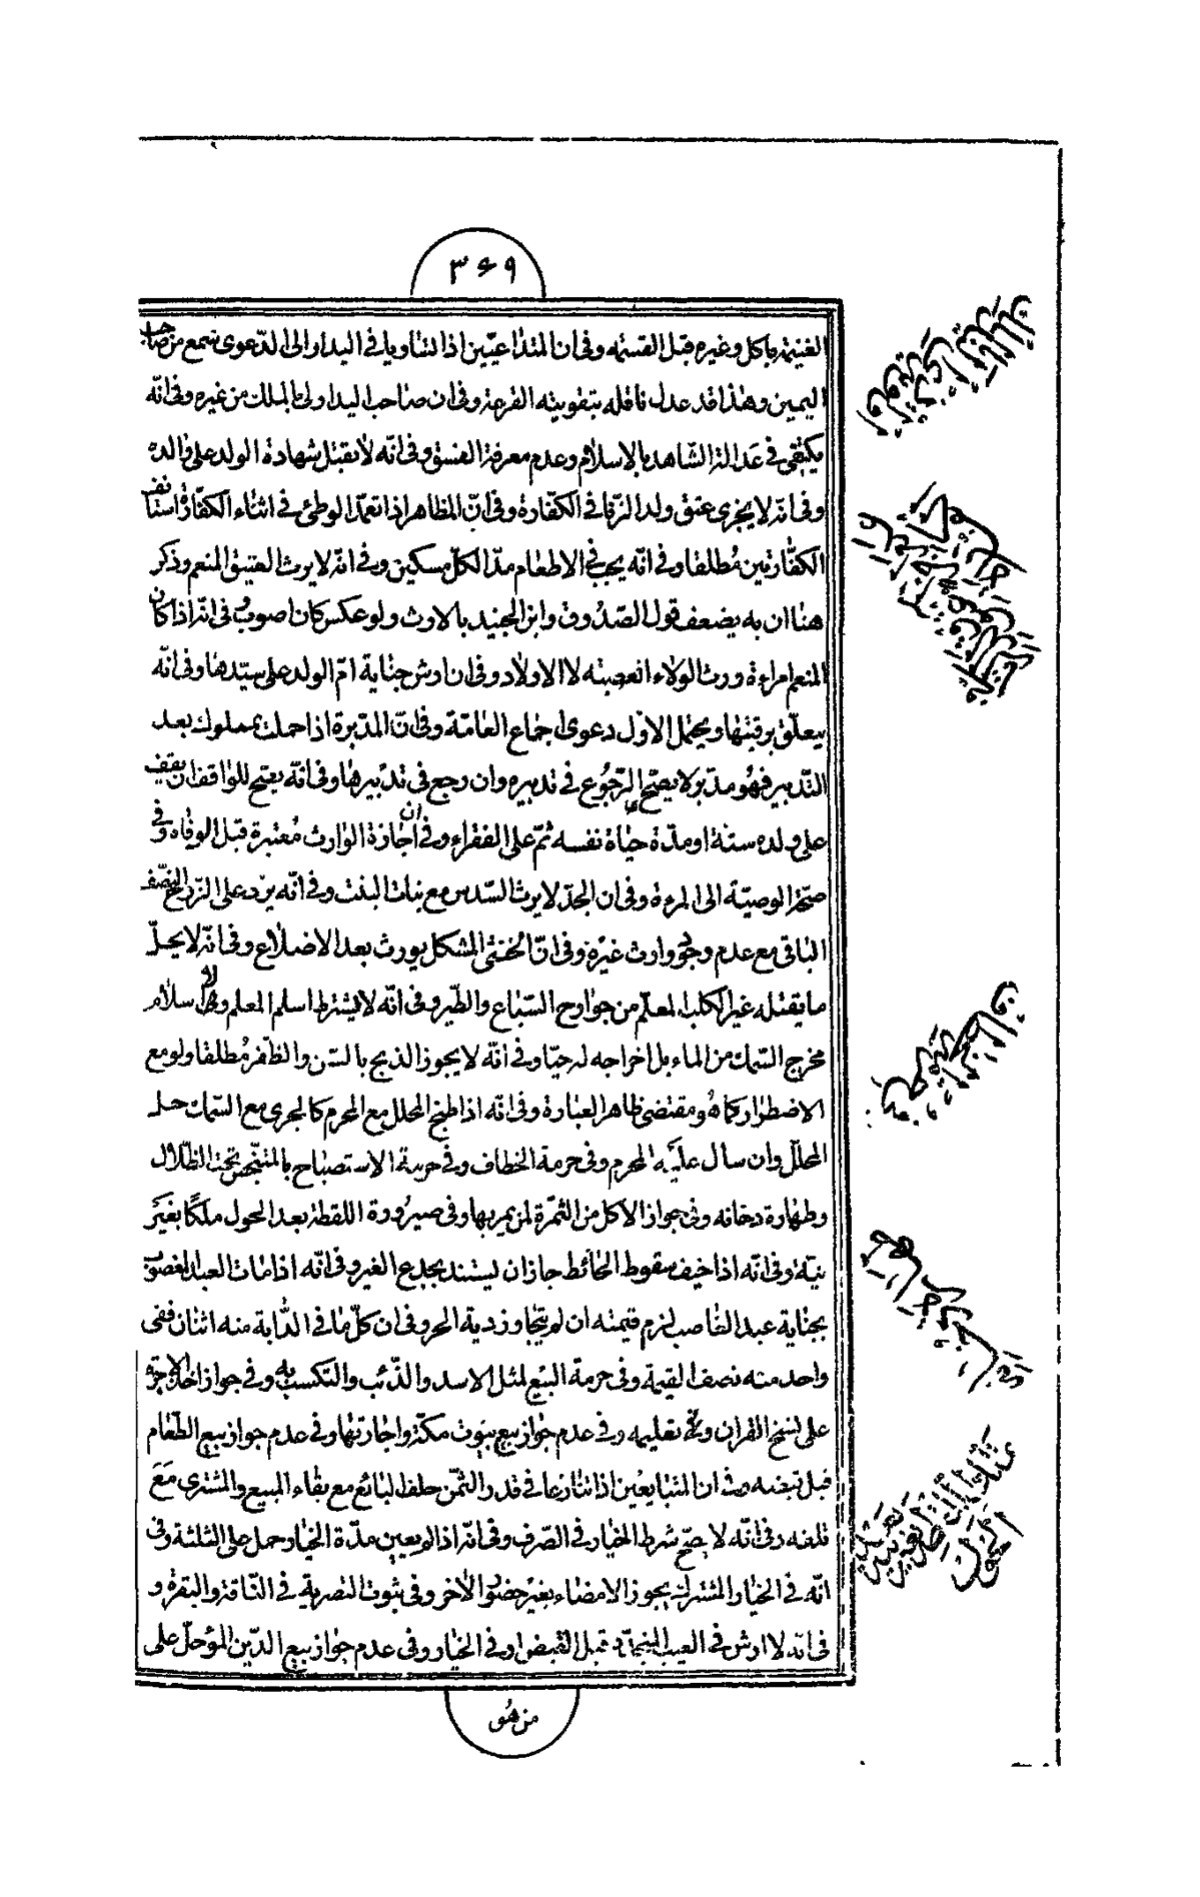 ۳۶۹
الغنيمة باكل وغيره قبل القسمة وفى ان المتداعيين اذا تساويا فى اليد او الى الدّعوى يسمع من صاحب
اليمين وهذا قد عدل ناقله بتقويته القرعة وفى ان صاحب اليد اولى بالملك من غيره وفى انّه
يكتفى فى عدالة الشّاهد بالاسلام وعدم معرفة الفسق وفى انّه لا يقبل شهادة الولد على والده
وفى انّه لا يجزى عتق ولد الزّنا فى الكفّارة وفى انّ المظاهر اذا تعمّد الوطئ فى اثناء الكفّارة استانف
الكفّارتين مُطلقا وفى انّه يجب فى الاطعام مدّ لكلّ مسكين وفى انّه لا يرث العتيق المنعم وذكر
هنا ان به يضعف قول الصّدُوق وابن الجنيد بالارث ولو عكس كان اصوب وفى انّه اذا كان
المنعم امراءة ورث الولاء العصبة لا الاولاد وفى ان ارش جناية امّ الولد على سيّدها وفى انّه
يتعلّق برقبتها ويحتمل الاوّل دعوى اجماع العامّة وفى انّ المدبّرة اذا حملت بمملوك بعد
التّدبير فهُو مدبّر ولا يصحّ الرّجُوع فى تدبيره وان رجع فى تدبيرها وفى انّه يصح للواقف ان يقف
على ولده سنة او مدّة حيٰاة نفسه ثمّ على الفقراء وفى ان اجٰازة الوٰارث مُعتبرة قبل الوفٰاة وفى
صحّة الوصيّة الى المرءة وفى ان الجدّ لا يرث السّدس مع بنات البنت وفى انّه يردّ على الزّوج النّصف
الباقى مع عدم وجُود وارث غيره وفى انّ الخنثى المشكل يورث بعد الاضلاع وفى انّه لا يحلّ
ما يقتله غير الكلب المعلّم من جوارح السّباع والطّير وفى انّه لا يشترط اسلام المعلم ولا اسلام
مخرج السّمك من الماء بل اخراجه له حيّا وفى انّه لا يجوز الذبح بالسّن والظّفر مُطلقا ولو مع
الاضطرار كما هُو مقتضى ظاهر العبارة وفى انّه اذا طبخ المحلل مع المحرم كالجرى مع السّمك حلّ
المحلّل وان سال عليه المحرم وفى حرمة الخطاف وفى حرمة الاستصباح بالمتنجّس تحت الظّلال
وطهٰارة دخانه وفى جواز الاكل من الثّمرة لمن يمر بها وفى صيرُورة اللقطة بعد الحول ملكًا بغير
نيّة وفى انّه اذا خيف سقوط الحائط جاز ان يستند بجذع الغير وفى انّه اذا مٰات العبد المغصوب
بجنٰاية عبد الغاصب لزم قيمته ان لم يتجاوز دية الحر وفى ان كلّ ما فى الدّابة منه اثنان ففى
واحد منه نصف القيمة وفى حرمة البيع لمثل الاسد والذّئب والتكسب به وفى جواز اخذ الاجرة
على نسخ القران وتعليمه وفى عدم جواز بيع بيُوت مكّة واجٰارتها وفى عدم جواز بيع الطّعام
قبل قبضه وفى ان المتبايعين اذا تنازعا فى قدر الثّمن حلف البائع مع بقاء المبيع والمشترى مع
تلفه وفى انّه لا يصحّ شرط الخيار فى الصّرف وفى انّه اذا لم يعين مدّة الخيار حمل على الثلثة وفى
انّه فى الخيٰار المشترك يجوز الامضاء بغير حضُور الاٰخر وفى ثبوت التصرية فى النّاقة والبقرة و
فى انّه لا ارش فى العيب المتجدّد قبل القبض او فى الخيار وفى عدم جوٰاز بيع الدّين المؤجّل على
من هُو